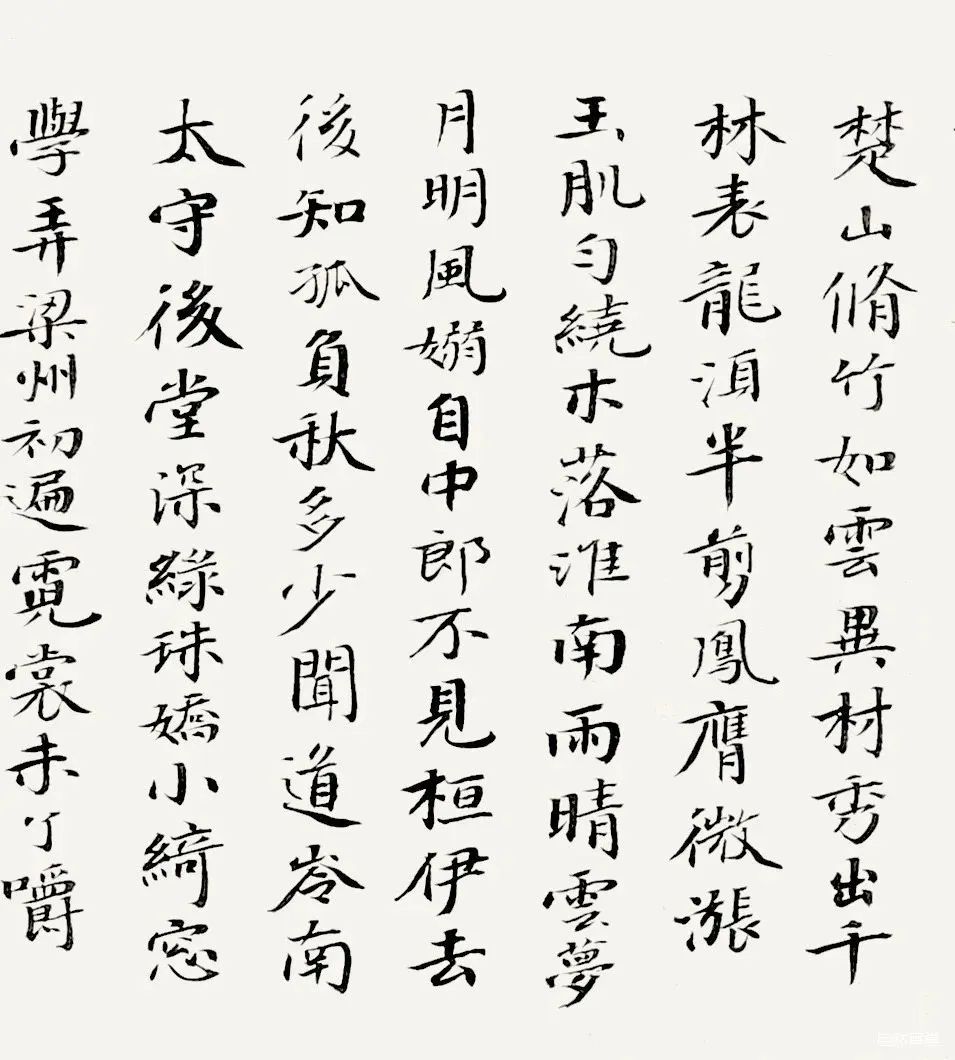 楚山脩竹如雲異材秀出千
林表龍湏半剪鳳膺微漲
玉肌勻繞木落淮南雨晴雲夢
月明風嫋自中郎不見桓伊去
後知孤負秋多少聞道岺南
太守後堂深綠珠嬌小綺窓
學弄梁州初遍霓裳未了嚼